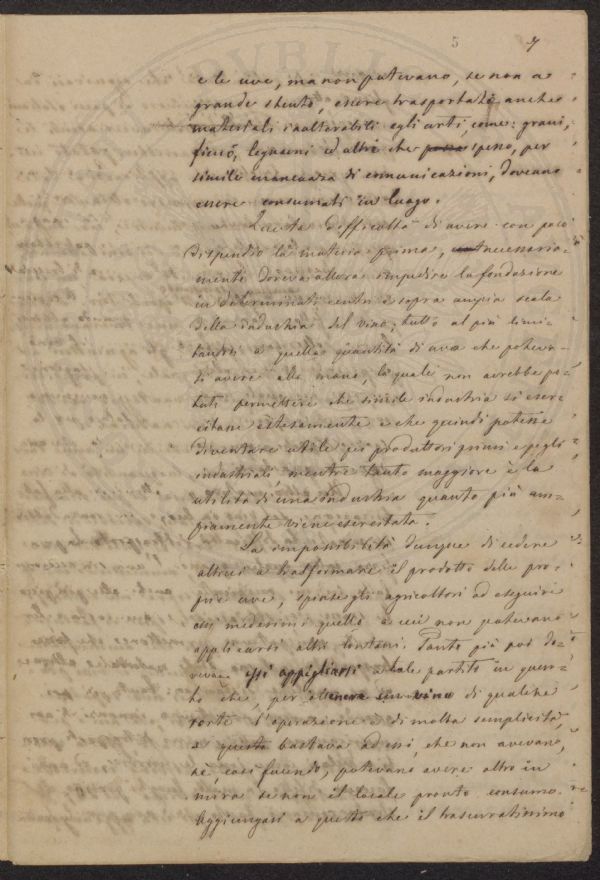 5 7
e le uve, ma non potevano, se non a
grande stento, essere trasportate, anche
materiali inalterabili agli urti, come: grani,
fieno, legnami ed altri che spesso, per
simile mancanza di comunicazioni, dovevano
essere consumati in luogo.
Questa difficoltà di avere con poco
dispendio la materia prima, necessaria-
mente doveva allora impedire la fondazione
in determinati centri e sopra ampia scala
della industria del vino; tutto al più limi-
tandosi a quella quantità di uva che poteva-
si avere alla mano, la quale non avrebbe po-
tuto permettere che simile industria si eser-
citasse estesamente e che quindi potesse
diventare utile pei produttori primi e pegli
industriali, mentre tanto maggiore è la
utilità di una industria quanto più am-
piamente viene esercitata.
La impossibilità dunque di cedere
altrui a trasformare il prodotto delle pro-
prie uve, spinse gli agricoltori ad eseguire
essi medesimi quello a cui non potevano
applicarsi altri lontani. Tanto più poi do-
vevano essi appigliarsi a tale partito in quan-
to che, per ottenere un vino di qualche
sorte l'operazione è di molta semplicità,
e questo bastava ad essi, che non avevano,
nè, così facendo, potevano avere altro in
mira se non il locale pronto consumo.
Aggiungasi a questo che il trascuratissimo